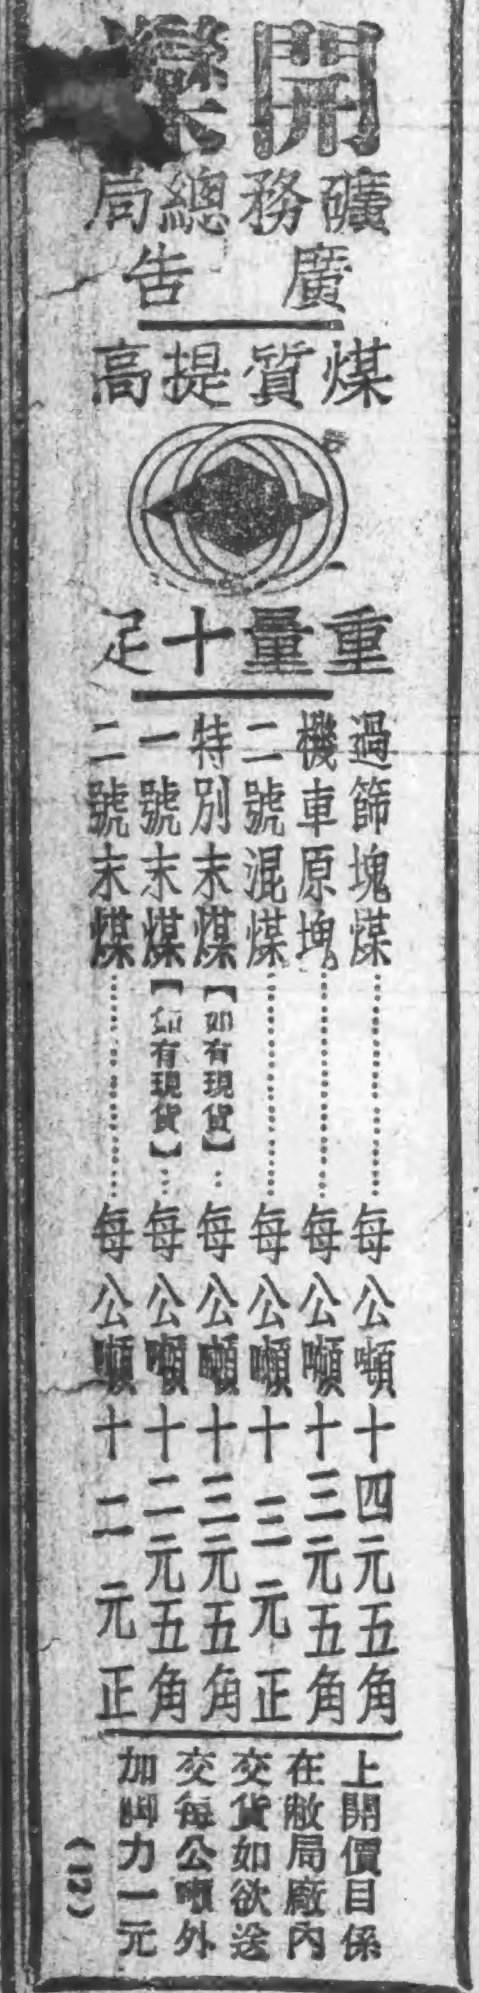 開灤
礦務總局
廣告
煤質提高
重量十足
過篩塊煤………………每公噸十四元五角
機車原塊………………每公噸十三元五角
二號混煤………………每公噸十三元正
特別末煤【如有現貨】…每公噸十三元五角
一號末煤【如有現貨】…每公噸十二元五角
二號末煤………………每公噸十二元正
上開價目係
在敝局廠內
交貨如欲送
交每公噸外
加脚力一元
(12)